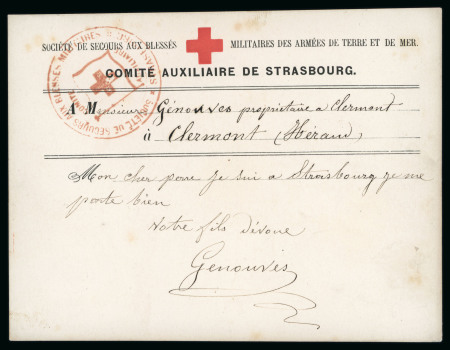 SOCIÉTÉ DE SECOURS AUX BLESSÉS MILITAIRES DES ARMÉES DE TERRE ET DE MER.
COMITÉ AUXILIAIRE DE STRASBOURG.
A Monsieur Génouvès propriétaire a Clermont
à Clermont (Héraut)
Mon cher pere je sui a Strasbourg je me
porte bien
Votre fils dévoué
Genouvès
SOCIÉTÉ DE SECOURS AUX BLESSÉS MILITAIRES